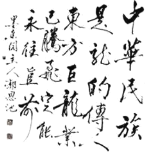 中華民族
是龍的傳人
東方巨龍業
已騰飛定能
永往直前